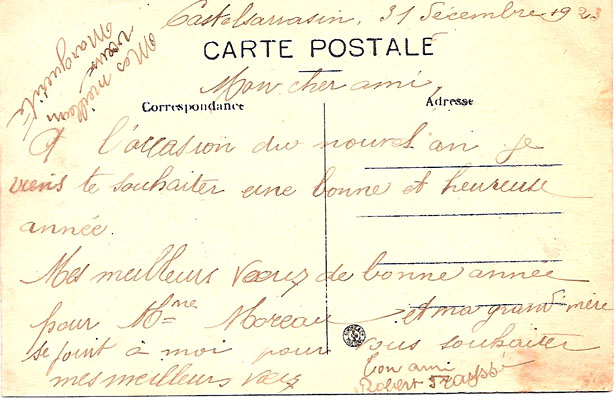 Castelsarrasin, 31 Décembre 1923
CARTE POSTALE
Mon cher ami,
Correspondance
Adresse
A l'occasion du nouvel an je
viens te souhaiter une bonne et heureuse
année.
Mes meilleurs vœux de bonne année
pour Mme Moreau et ma grand'mère
se joint à moi pour vous souhaiter
mes meilleurs vœux
Ton ami
Robert
Mes meilleurs
vœux
Marguerite